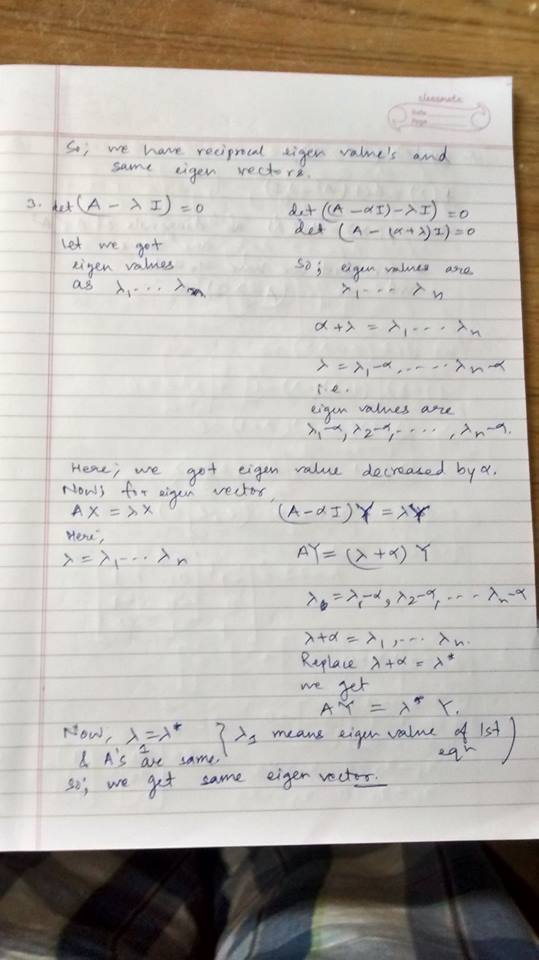 classmate
Date
Page
So; we have reciprocal eigen value's and
same eigen vectors.
3. det (A - λ I) = 0
Let we got
eigen values
as λ₁ .... λₙ
det ((A - αI) - λI) = 0
det (A - (α+λ)I) = 0
So; eigen values are
λ₁ .... λₙ
α + λ = λ₁ .... λₙ
λ = λ₁-α, ..... λₙ-α
i.e.
eigen values are
λ₁-α, λ₂-α, ...., λₙ-α.
Here; we got eigen value decreased by α.
Now; for eigen vector,
AX = λX
Here;
λ = λ₁ .... λₙ
(A - αI) Y = λY
AY = (λ + α) Y
λ = λ₁-α, λ₂-α, .... λₙ-α
λ+α = λ₁, .... λₙ.
Replace λ+α = λ*
we get
AY = λ* Y.
Now, λ₁ = λ* } λ₁ means eigen value of 1st
& A's are same. eqⁿ )
So; we get same eigen vector.